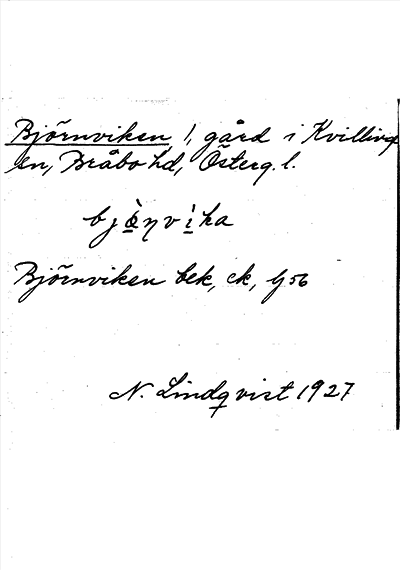 Björnviken /, gård i Kvillinge
sn, Bråbo hd, Österg. l.
bjö̀ηvi̇̀ka
Björnviken bek, ek, G 56
N. Lindqvist 1927